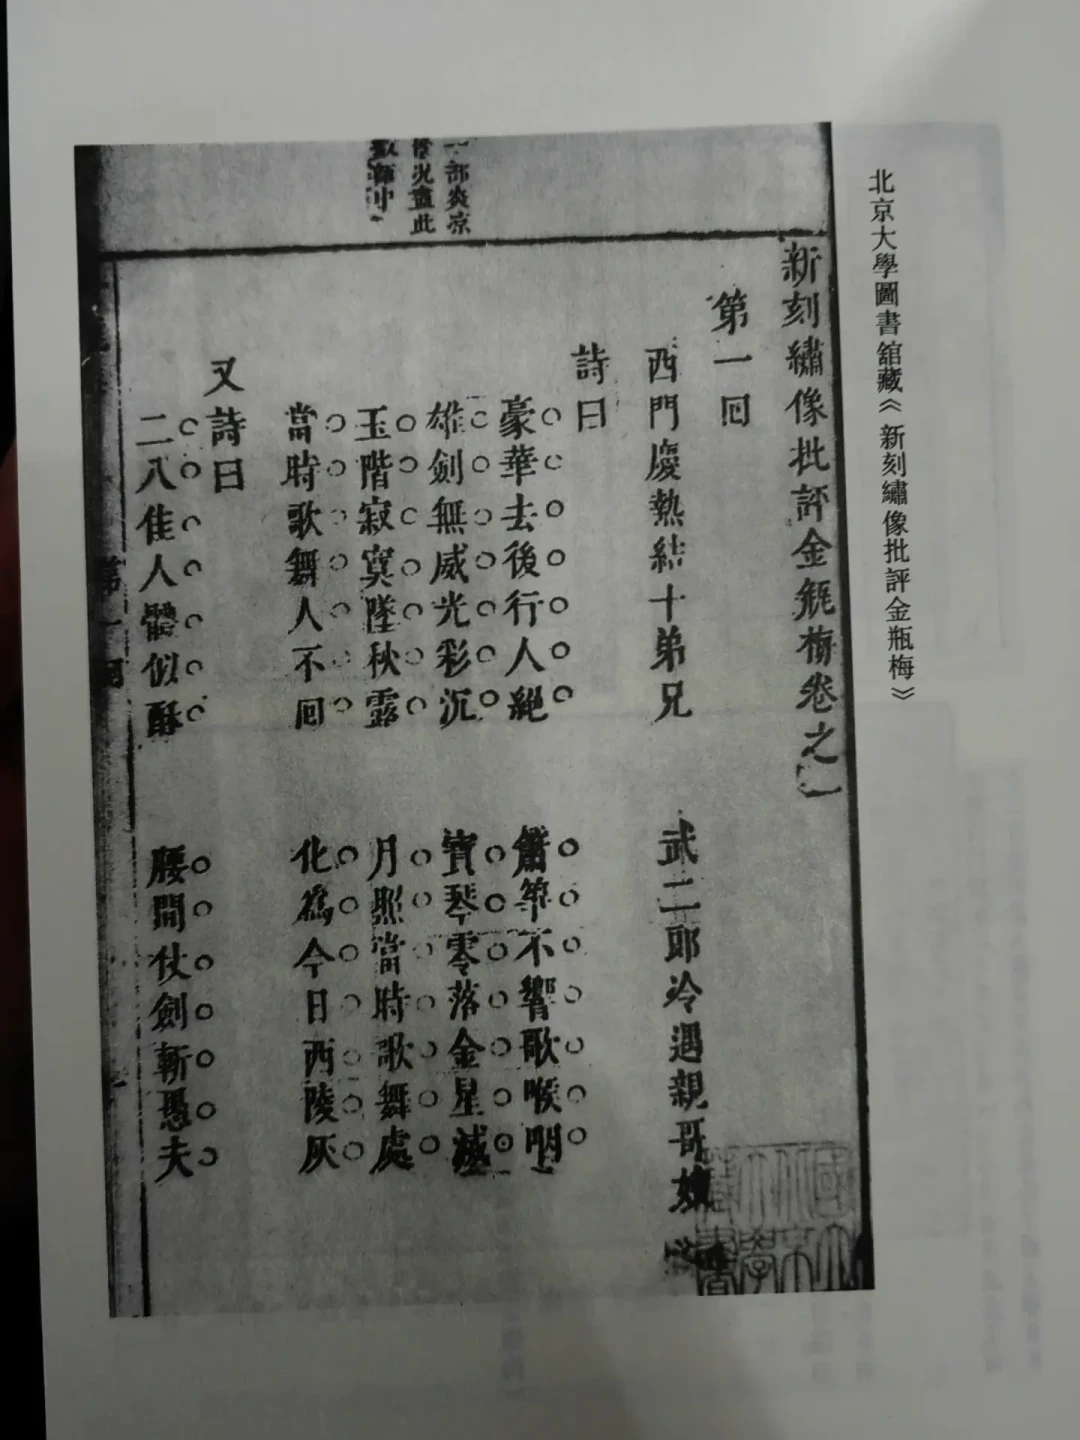 北京大學圖書舘藏《新刻繡像批評金瓶梅》
新刻繡像批評金瓶梅卷之一
第一回
西門慶熱結十弟兄　武二郎冷遇親哥嫂
詩曰
豪華去後行人絕　簫箏不響歌喉咽
雄劍無威光彩沉　寶琴零落金星滅
玉階寂寞墜秋露　月照當時歌舞處
當時歌舞人不回　化為今日西陵灰
又詩曰
二八佳人體似酥　腰間仗劍斬愚夫
一部炎涼
景況盡此
數語中
第一回
國立北京大學藏書